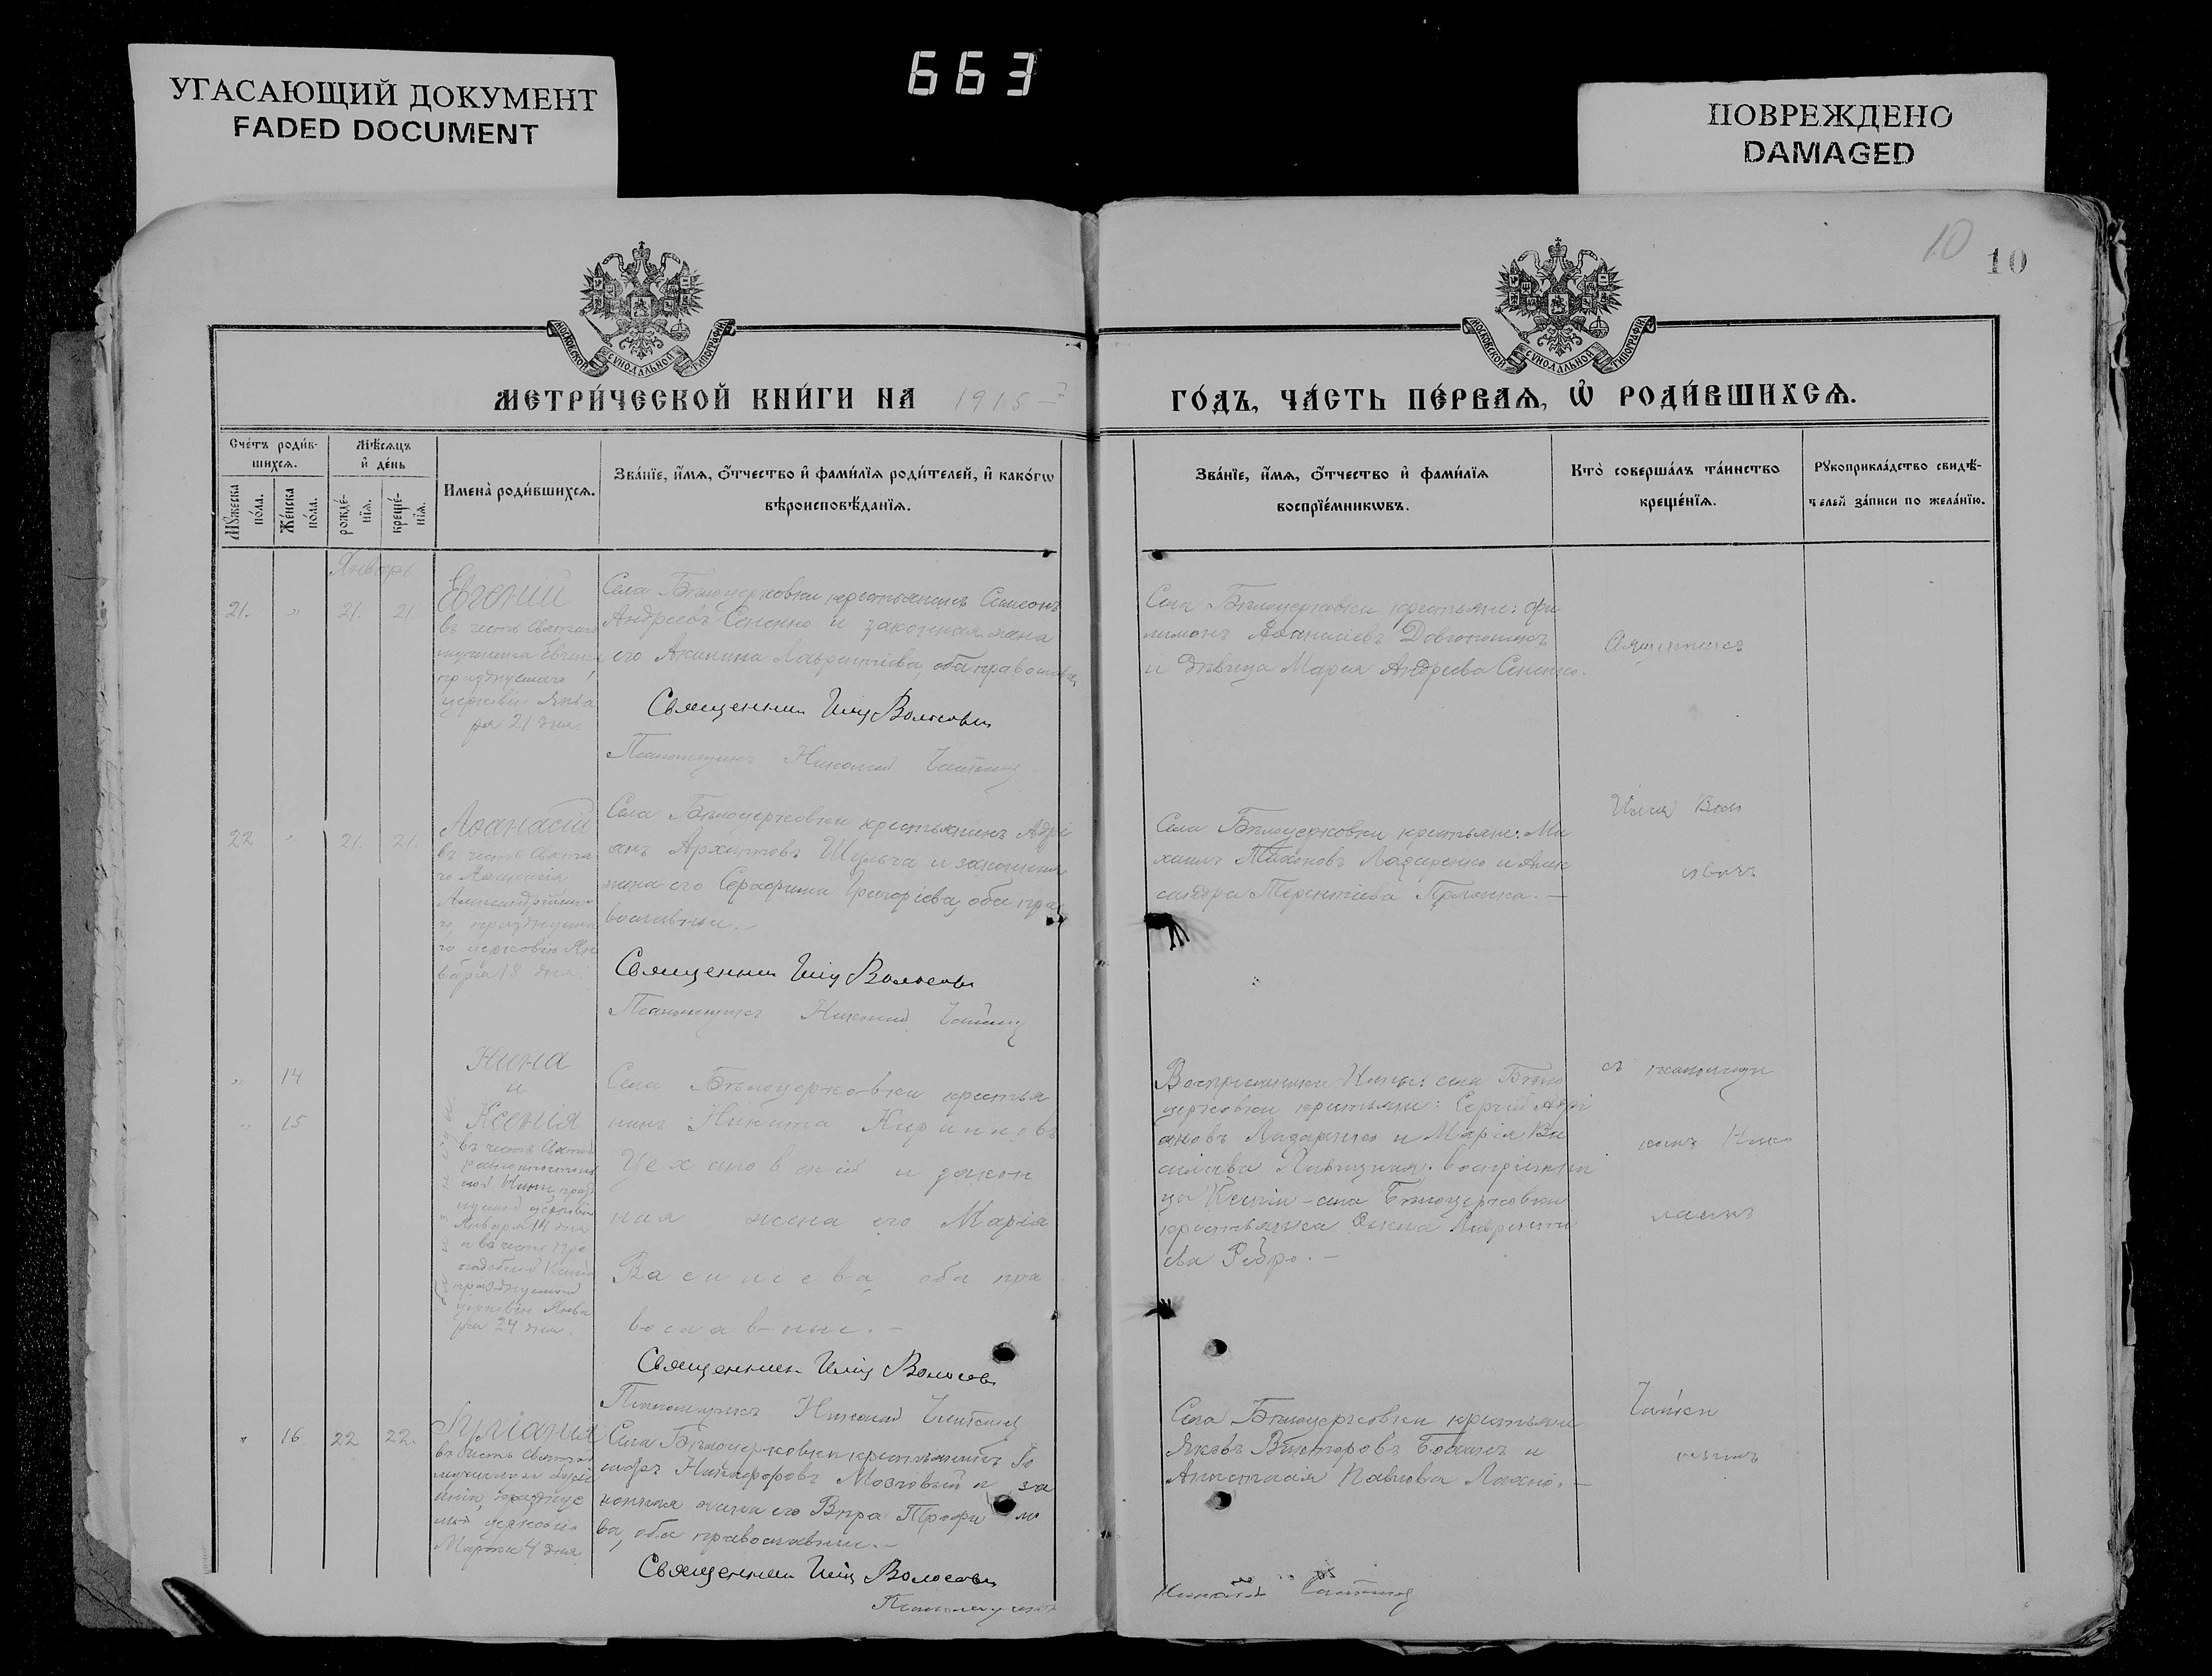 УГАСАЮЩИЙ ДОКУМЕНТ
FADED DOCUMENT
663
ПОВРЕЖДЕНО
DAMAGED
10
10
МОСКОВСКОЙ СУНОДАЛЬНОЙ ТИПОГРАФІИ
МОСКОВСКОЙ СУНОДАЛЬНОЙ ТИПОГРАФІИ
МЕТРИ́ЧЕСКОЙ КНИ́ГИ НА 1915
ГО́ДЪ, ЧА́СТЬ ПЕ́РВАѦ, Ѡ҆ РОДИ́ВШИХСѦ.
Сче́тъ роди́в-
шихсѧ.
Мѣ́сѧцъ
и҆ де́нь
Мꙋ́жеска по́ла.
Же́нска по́ла.
рожде́-
нїѧ.
креще́-
нїѧ.
Имена̀ роди́вшихсѧ.
Зва́нїе, и҆́мѧ, ѻ҆́тчество и҆ фами́лїѧ роди́телей, и҆ како́гѡ
вѣроисповѣ́данїѧ.
Зва́нїе, и҆́мѧ, ѻ҆́тчество и҆ фами́лїѧ
воспрїе́мникѡвъ.
Кто̀ соверша́лъ та́инство
креще́нїѧ.
Рꙋкоприкла́дство свидѣ́-
телей за́писи по жела́нїю.
Январь
21. " 21. 21.
Евгеній
въ честь Святаго
мученика Евгенія
празднуемаго
церковію Янва
ря 21 дня.
Села Бѣлоцерковки крестьянинъ Симеонъ
Андреевъ Сененко и законная жена
его Акилина Лаврентіева, оба православн
Священникъ Волосов
Псаломщикъ Николай
Села Бѣлоцерковки крестьяне: Фи
лимонъ Аѳанасіевъ
и дѣвица Марія Андреева Сененко.
Священникъ
22 " 21. 21.
Аѳанасій
въ честь Свята
го Аѳанасія
Александрійска
го, празднуема
го церковію Ян
варя 18 дня.
Села Бѣлоцерковки крестьянинъ Адрі
анъ Архиповъ Шульга и законная
жена его Серафима Григоріева, оба пра
вославные.-
Священникъ Волосов
Псаломщикъ Николай
Села Бѣлоцерковки крестьяне: Ми
хаилъ Лазаренко и Алек
сандра Терентіева
Илія Воло
совичъ
" 14
" 15
Нина
и
Ксенія
въ честь Святой
равноапостоль
ной Нины, праз
нуемой церковію
Января 14 дня
и въ честь Пре
подобной Ксеніи
празднуемой
церковію Янва
ря 24 дня.
Села Бѣлоцерковки крестья
нинъ Никита Кирилловъ
Цехановскій и закон
ная жена его Марія
Василіева, оба пра
вославные.-
Священникъ Волосов
Псаломщикъ Николай
Воспріемники Нины: села Бѣло
церковки крестьяне: Сергій Андрі
ановъ Лазаренко и Марія Ва
силіева воспріемни
ца Ксеніи - села Бѣлоцерковки
крестьянка Лаврентіе
ва Ребро.-
съ псаломщи
комъ Нико
лаемъ
" 16 22 22.
въ честь Святой
мученицы
празднуе
мой церковію
Марта 4 дня
Села Бѣлоцерковки крестьянинъ
Никифоровъ Мозговый и за
конная жена его Вѣра Трофимо
ва, оба православные.-
Священникъ Волосов
Псаломщикъ
Села Бѣлоцерковки крестьяне
Яковъ Викторовъ и
Анастасія Павлова
Николай